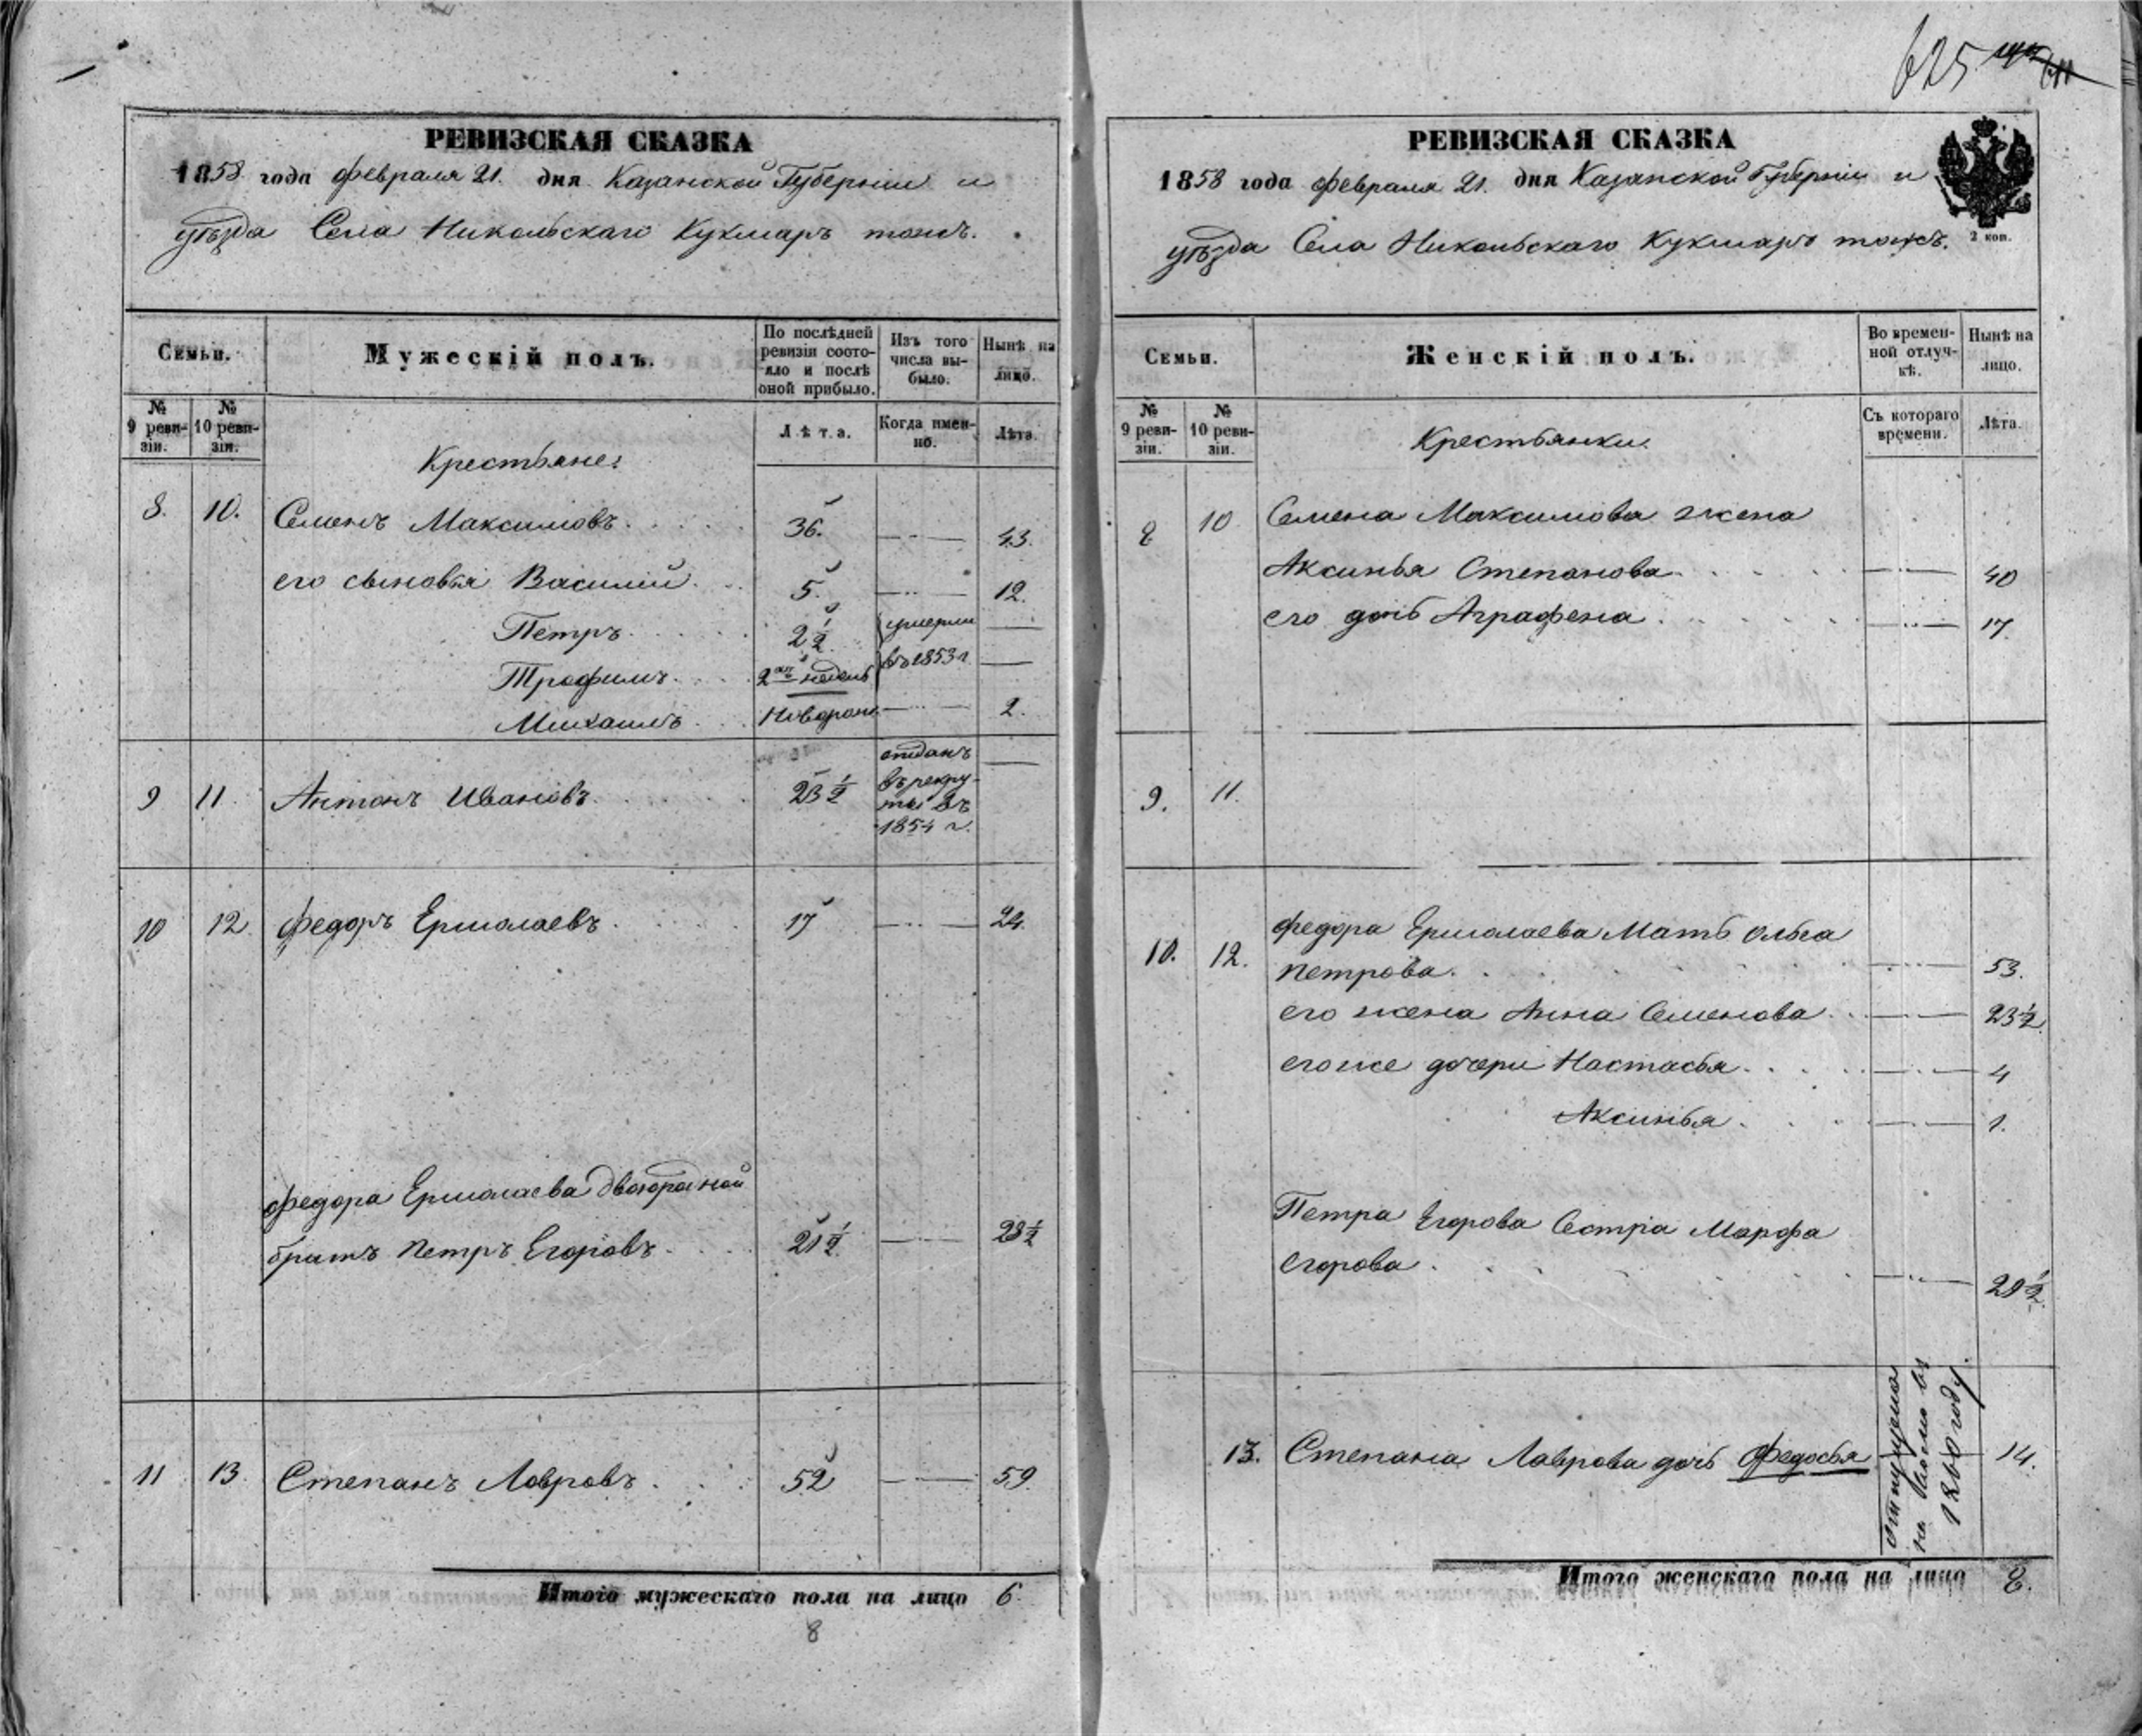 625
РЕВИЗСКАЯ СКАЗКА
1858 года февраля 21. дня Казанской Губернiи и
уѣзда Села Никольскаго Кукмаръ тожъ.
Семьи.
Мужескiй полъ.
По послѣдней ревизiи состояло и послѣ оной прибыло.
Изъ того числа выбыло.
Нынѣ на лицо.
№ 9 ревизiи.
№ 10 ревизiи.
Лѣта.
Когда именно.
Лѣта.
Крестьяне:
8. 10. Семенъ Максимовъ. 36. 43.
его сыновья Василiй. 5. 12.
Петръ. 2 1/2. умерли
Трофимъ. 2хъ недель въ 1853 г.
Михаилъ. Новорож. 2.
9 11. Антонъ Ивановъ. 23 1/2 отданъ
въ рекру-
ты въ
1854 г.
10 12 Федоръ Ермолаевъ. 17 24.
Федора Ермолаева двоюродной
братъ Петръ Егоровъ. 21 1/2 28 1/2
11 13. Степанъ Лавровъ. 52 59.
Итого мужескаго пола на лицо 6.
8
РЕВИЗСКАЯ СКАЗКА
1858 года февраля 21. дня Казанской Губернiи и
уѣзда Села Никольскаго Кукмаръ тожъ.
2 коп.
Семьи.
Женскiй полъ.
Во временной отлучкѣ.
Нынѣ на лицо.
№ 9 ревизiи.
№ 10 ревизiи.
Съ котораго времени.
Лѣта.
Крестьянки.
8 10 Семена Максимова жена
Аксинья Степанова. 40
его дочь Аграфена. 17.
9. 11.
10. 12. Федора Ермолаева Мать Ольга
Петрова. 53.
его жена Анна Семенова. 23 1/2.
его же дочери Настасья. 4
Аксинья. 1.
Петра Егорова Сестра Марфа
Егорова. 29 1/2.
13. Степана Лаврова дочь Федосья 14.
отпущена
на волю въ
1860 году.
Итого женскаго пола на лицо 8.